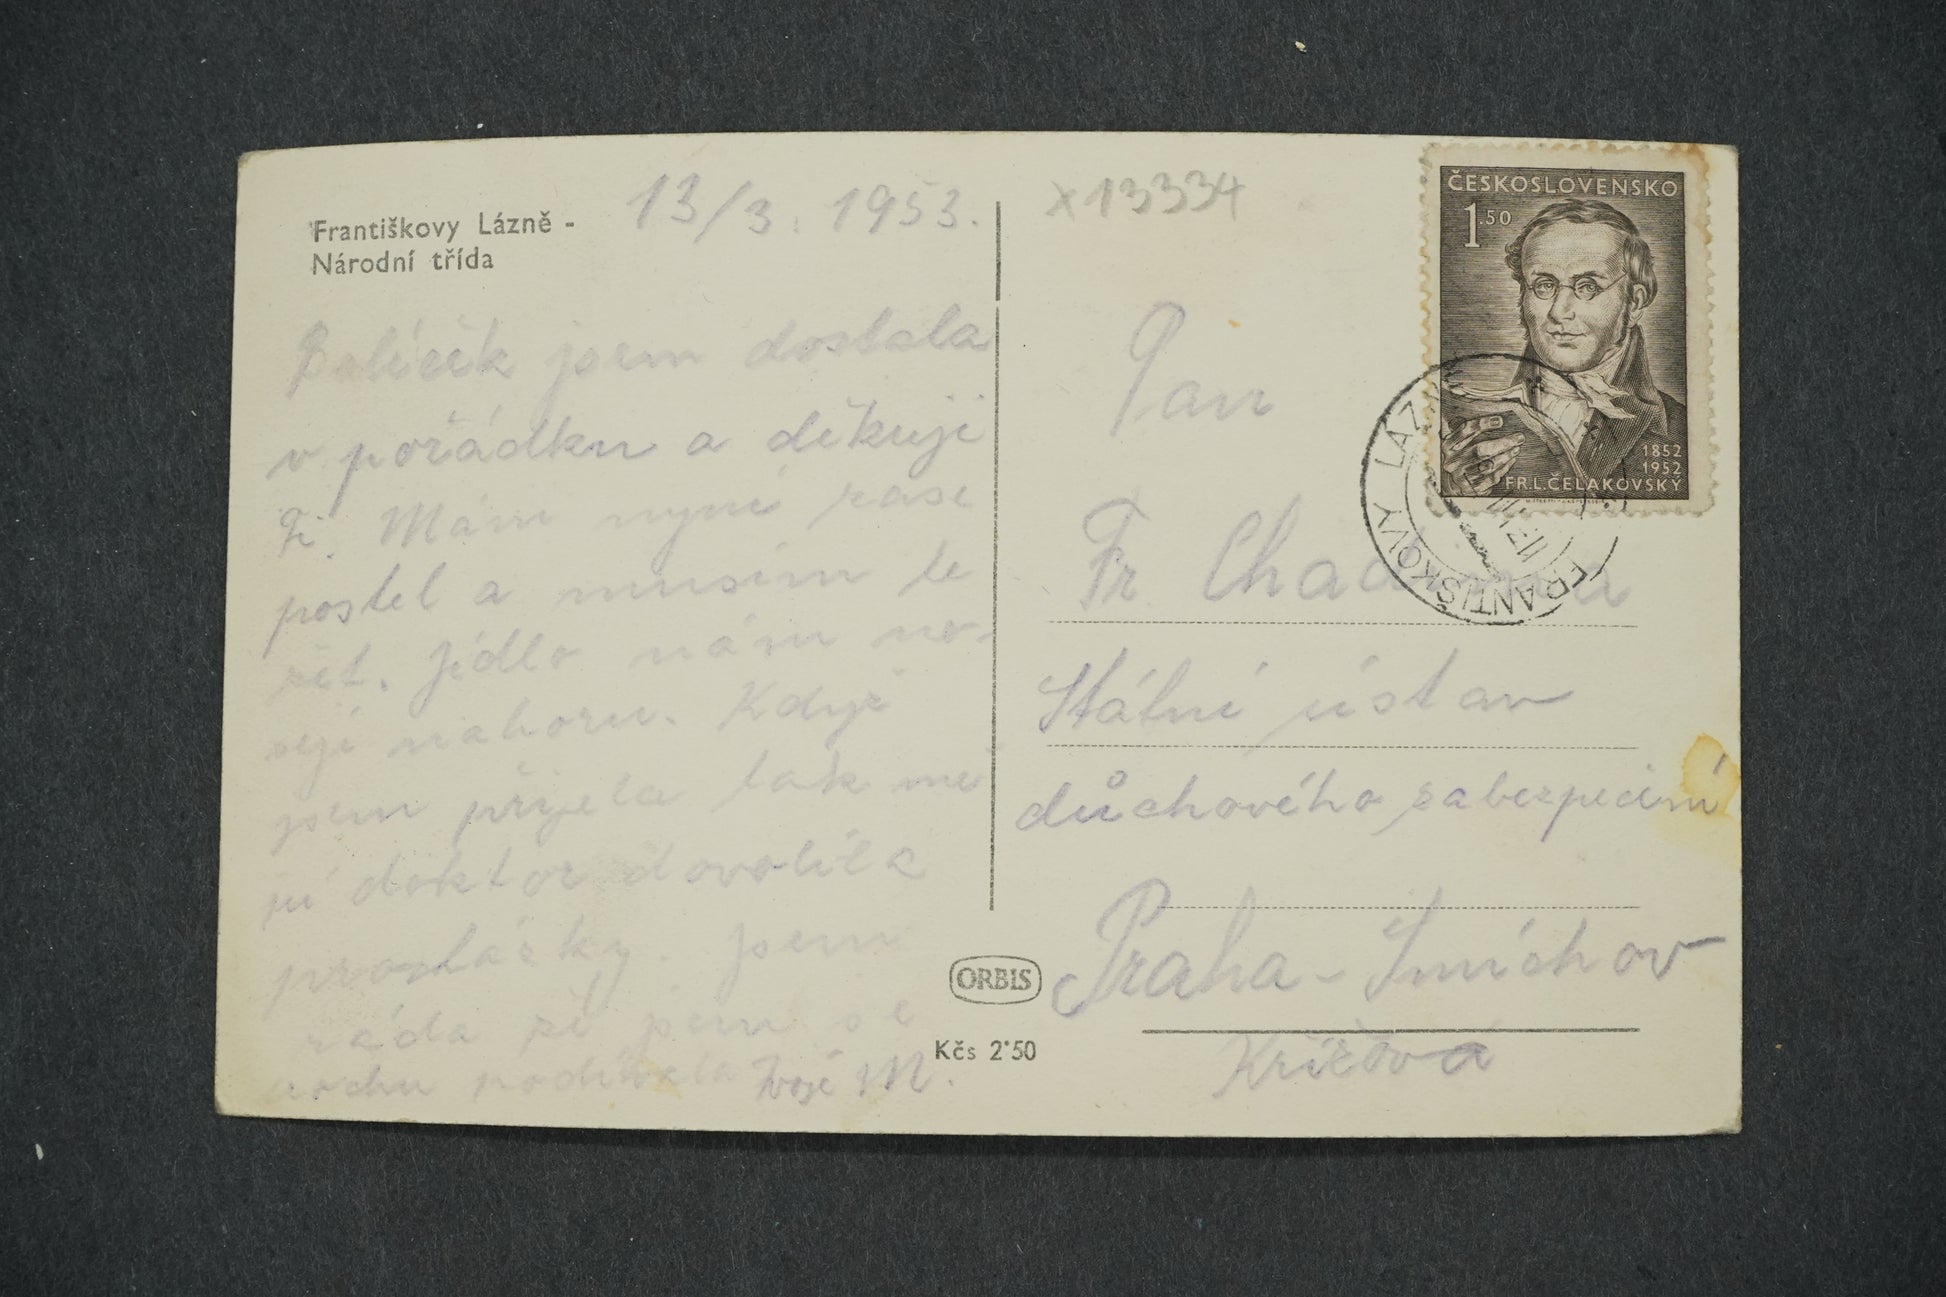 Františkovy Lázně -
Národní třída
13/3. 1953.
Balíček jsem dostala
v pořádku a děkuji
Ti. Mám nyní zase
postel a musím le
žet. Jídlo nám no-
sejí nahoru. Když
jsem přijela tak me
ní doktor dovolil
procházky. Jsem
ráda že jsem se
trochu podívala Tvojé M.
ORBIS
Kčs 2'50
x13334
ČESKOSLOVENSKO
1.50
1852
1952
FR.L.ČELAKOVSKÝ
FRANTIŠKOVY LÁZNĚ
Pan
Fr. Chadima
Státní ústav
důchového zabezpečení
Praha - Smíchov
Křížová